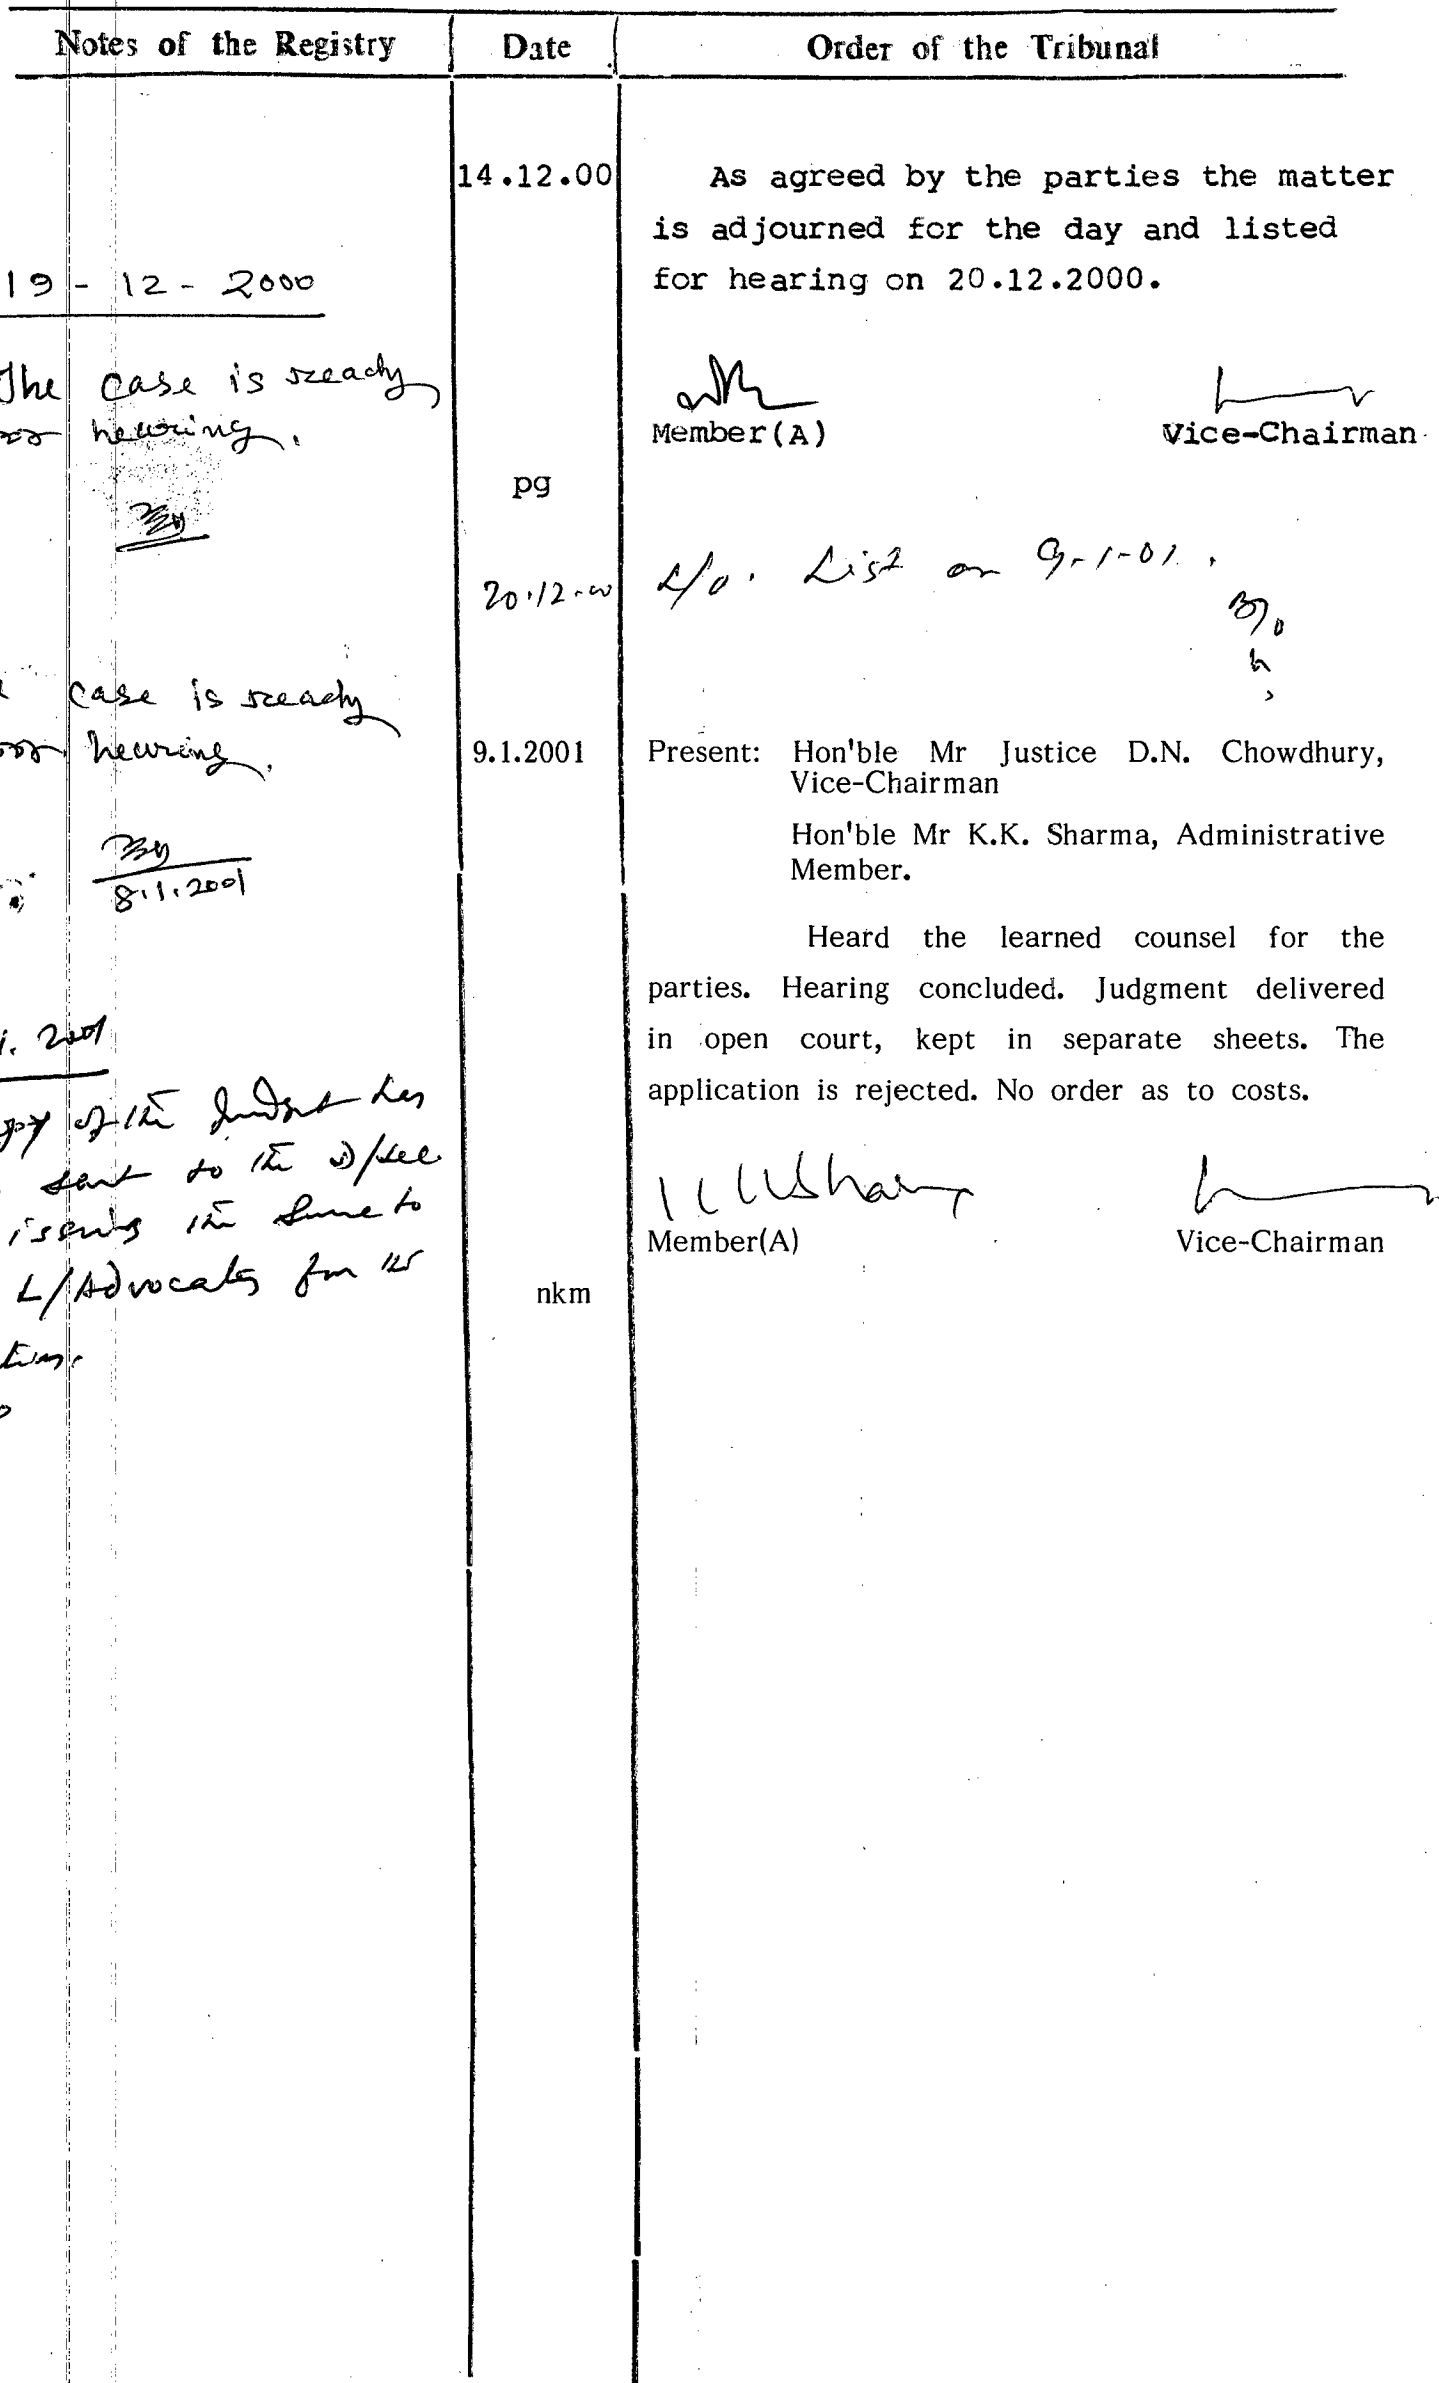 Notes of the Registry | Date | Order of the Tribunal
14.12.00
As agreed by the parties the matter
is adjourned for the day and listed
for hearing on 20.12.2000.
Member(A) Vice-Chairman
pg
19 - 12 - 2000
The case is ready
hearing.
20.12.00
List on 9-1-01.
case is ready
hearing.
8.1.2001
9.1.2001
Present: Hon'ble Mr Justice D.N. Chowdhury,
Vice-Chairman
Hon'ble Mr K.K. Sharma, Administrative
Member.
Heard the learned counsel for the
parties. Hearing concluded. Judgment delivered
in open court, kept in separate sheets. The
application is rejected. No order as to costs.
KKSharma
Member(A) Vice-Chairman
nkm
2001
of the Judgment has
sent to the D/Sec
issuing the same to
L/Advocates for the